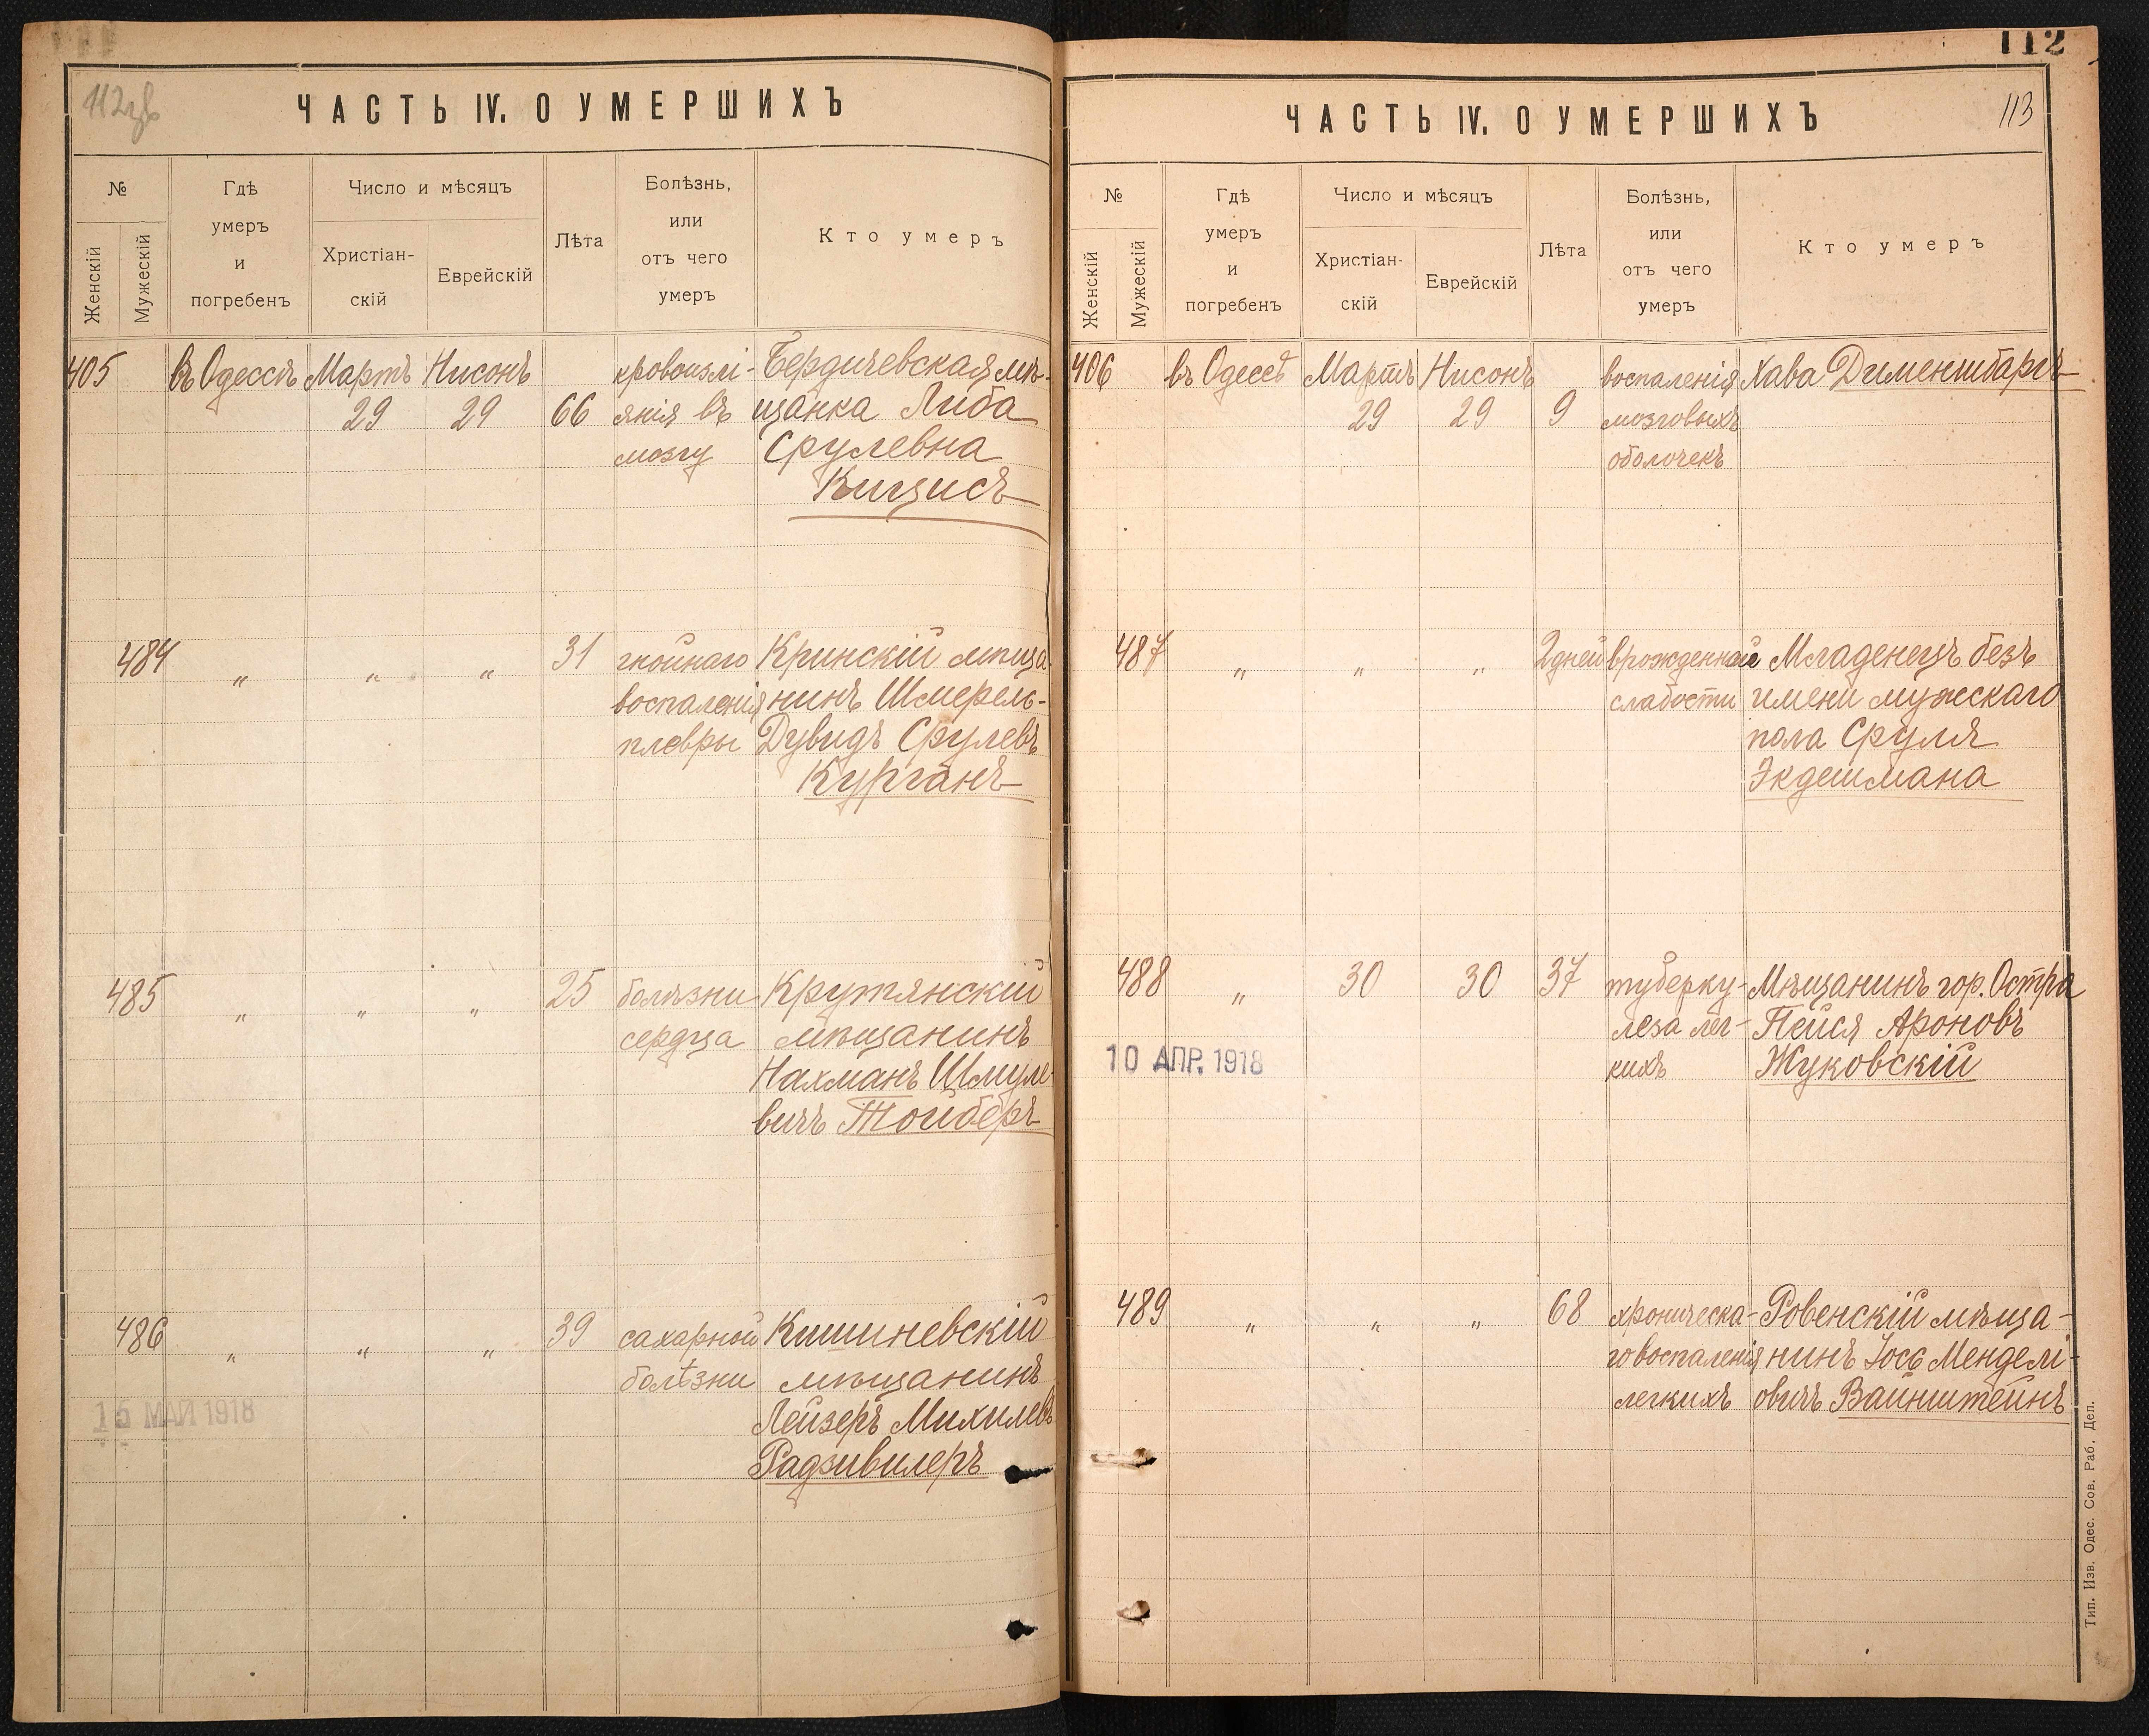 112
112зв
113
ЧАСТЬ IV. О УМЕРШИХЪ
№
Женскій
Мужескій
Гдѣ
умеръ
и
погребенъ
Число и мѣсяцъ
Христіан-
скій
Еврейскій
Лѣта
Болѣзнь,
или
отъ чего
умеръ
Кто умеръ
405 въ Одессѣ Мартъ Нисонъ кровоизлі- Бердичевская мѣ-
29 29 66 янія въ щанка Либа
мозгу Срулевна
Кицисъ
484 " " " 31 гнойнаго Кринскій мѣща-
воспаленія нинъ Шмерель-
плевры Дувидъ Срулевъ
Курганъ
485 " " " 25 болѣзни Крутянскій
сердца мѣщанинъ
Нахманъ Шмуле-
вичъ Тойберъ
486 " " " 39 сахарной Кишиневскій
болѣзни мѣщанинъ
Лейзеръ Михилевъ
15 МАЙ 1918
Радзивилеръ
ЧАСТЬ IV. О УМЕРШИХЪ
№
Женскій
Мужескій
Гдѣ
умеръ
и
погребенъ
Число и мѣсяцъ
Христіан-
скій
Еврейскій
Лѣта
Болѣзнь,
или
отъ чего
умеръ
Кто умеръ
406 въ Одессѣ Мартъ Нисонъ воспаленія Хава Дименштаргъ
29 29 9 мозговыхъ
оболочекъ
487 " " " 2 дней врожденной Младенецъ безъ
слабости имени мужескаго
пола Сруля
Экдешмана
488 " 30 30 37 туберку- Мѣщанинъ гор. Остра
леза лег- Пейся Ароновъ
10 АПР. 1918
кихъ Жуковскій
489 " " " 68 хроническа- Ровенскій мѣща-
го воспаленія нинъ Іосъ Менделі-
легкихъ овичъ Вайнштейнъ
Тип. Изв. Одес. Сов. Раб. Деп.